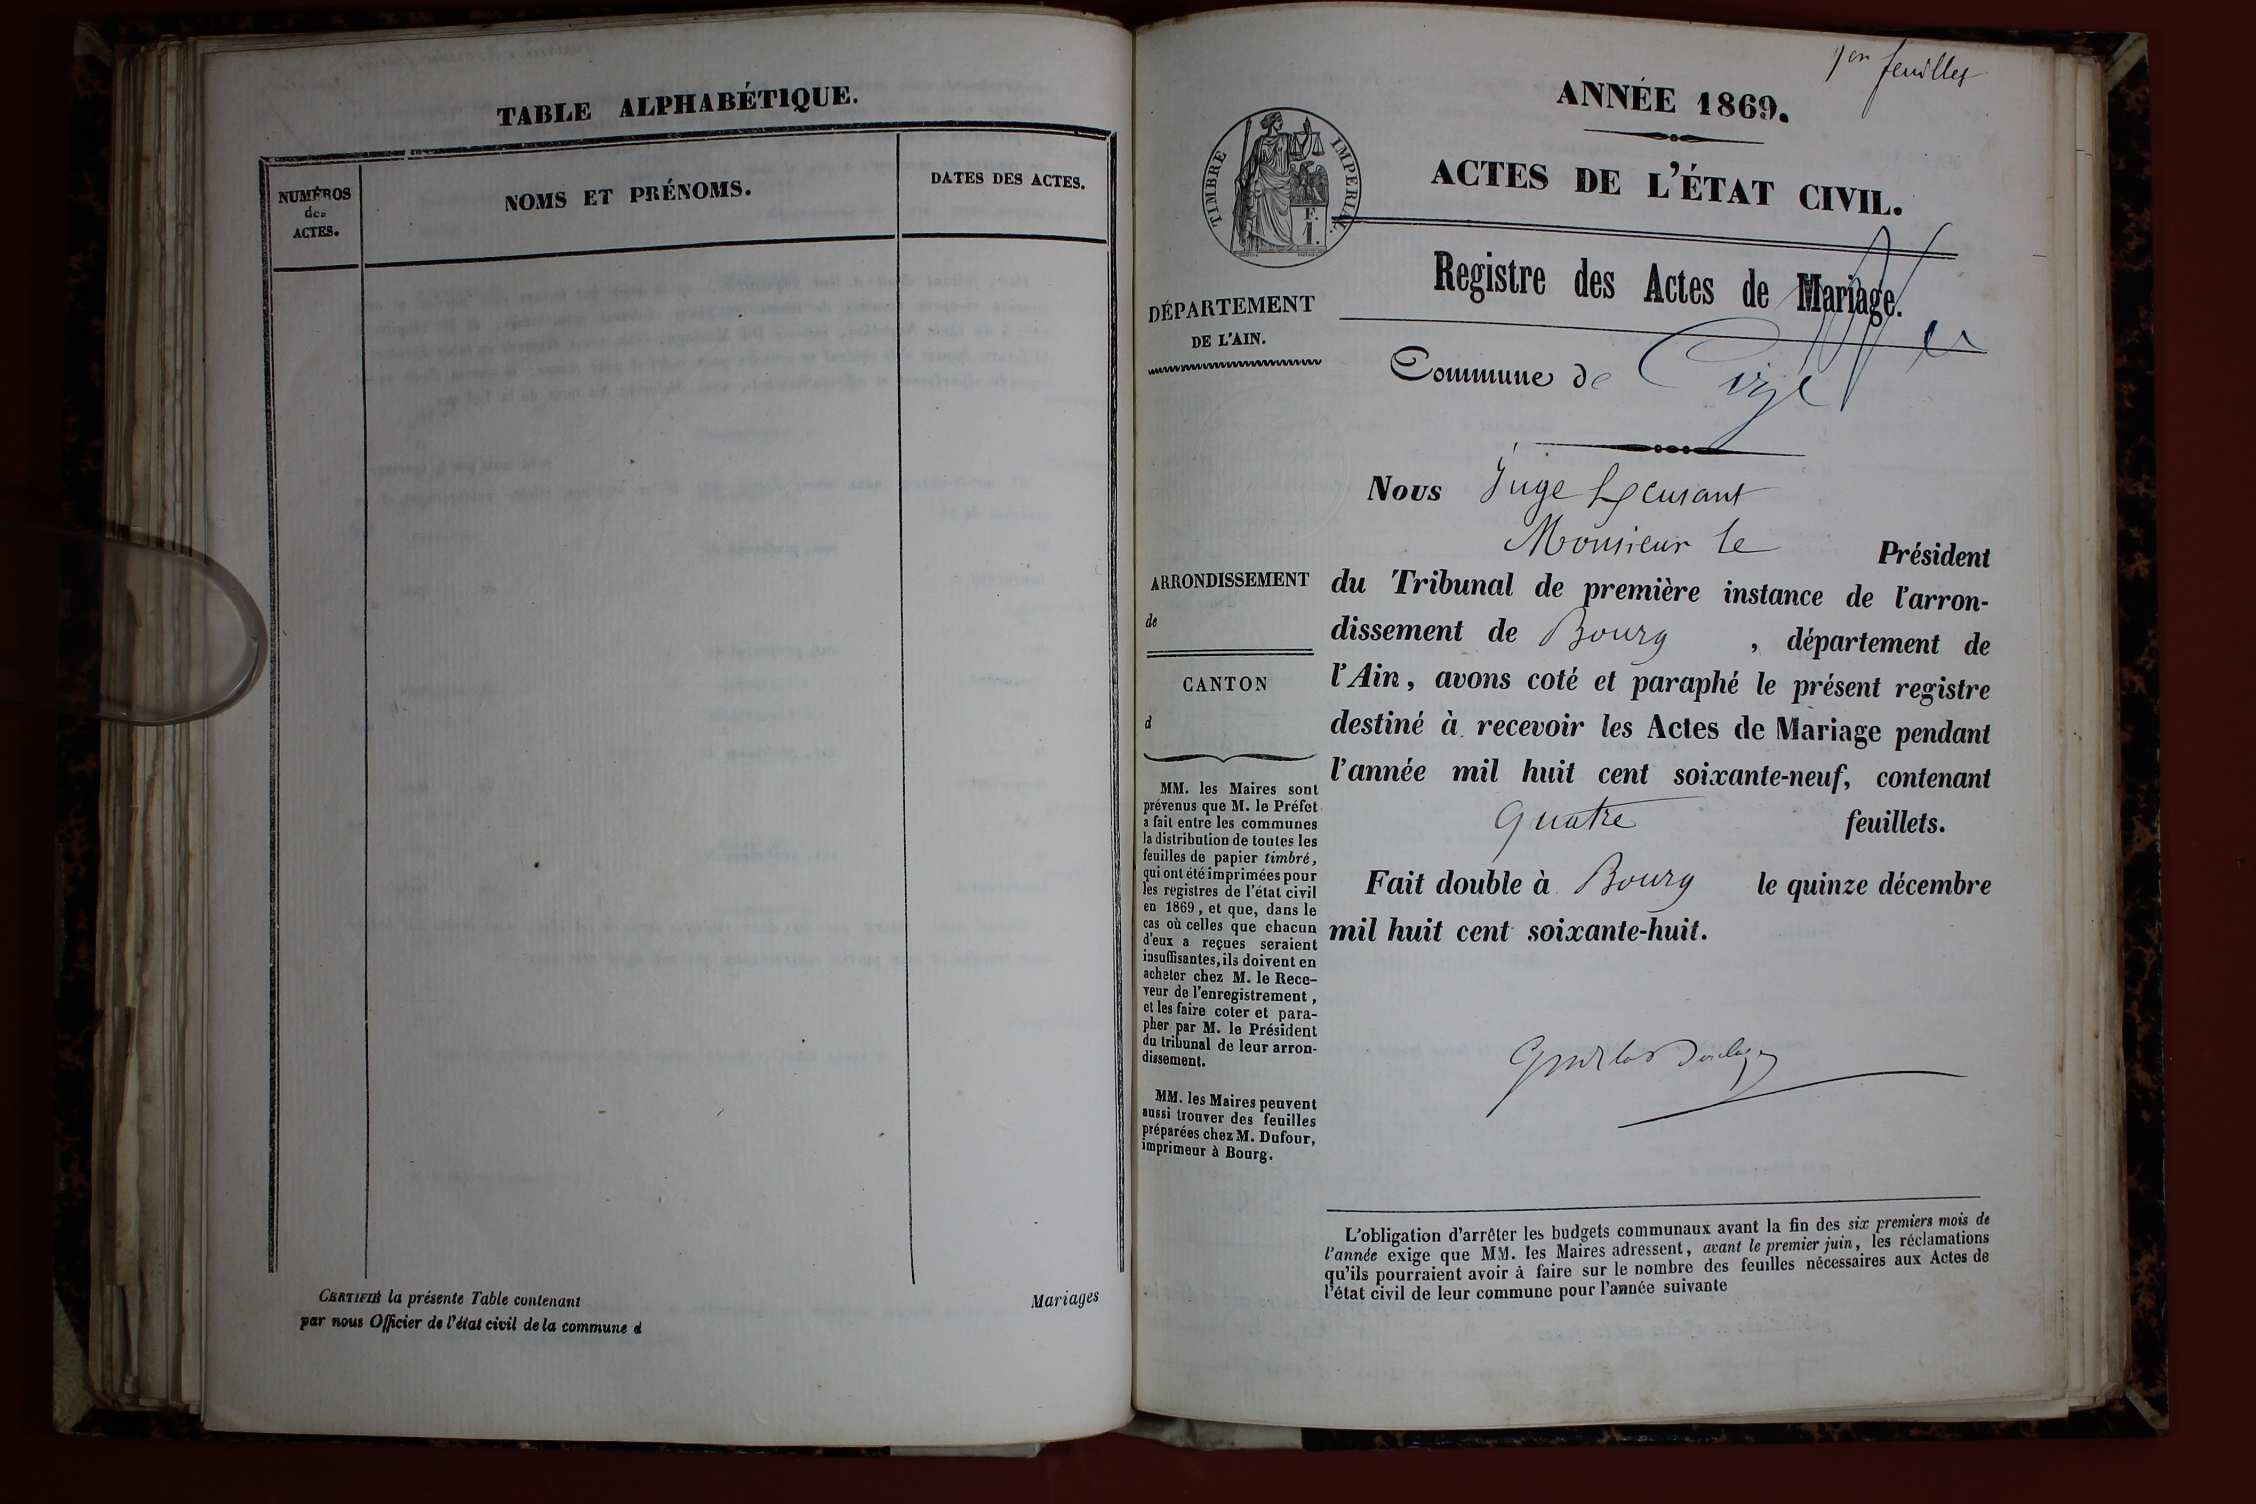 TABLE ALPHABÉTIQUE.
NUMÉROS
des
ACTES.
NOMS ET PRÉNOMS.
DATES DES ACTES.
CERTIFIÉ la présente Table contenant Mariages
par nous Officier de l'état civil de la commune d
1er feuillet
ANNÉE 1869.
ACTES DE L'ÉTAT CIVIL.
TIMBRE IMPERIAL.
F.
1.
Registre des Actes de Mariage.
DÉPARTEMENT
DE L'AIN.
Commune de Cize
Nous Juge
Monsieur le Président
du Tribunal de première instance de l'arron-
dissement de Bourg, département de
l'Ain, avons coté et paraphé le présent registre
destiné à recevoir les Actes de Mariage pendant
l'année mil huit cent soixante-neuf, contenant
quatre feuillets.
Fait double à Bourg le quinze décembre
mil huit cent soixante-huit.
ARRONDISSEMENT
de
CANTON
d
MM. les Maires sont
prévenus que M. le Préfet
a fait entre les communes
la distribution de toutes les
feuilles de papier timbré,
qui ont été imprimées pour
les registres de l'état civil
en 1869, et que, dans le
cas où celles que chacun
d'eux a reçues seraient
insuffisantes, ils doivent en
acheter chez M. le Rece-
veur de l'enregistrement,
et les faire coter et para-
pher par M. le Président
du tribunal de leur arron-
dissement.
MM. les Maires peuvent
aussi trouver des feuilles
préparées chez M. Dufour,
imprimeur à Bourg.
L'obligation d'arrêter les budgets communaux avant la fin des six premiers mois de
l'année exige que MM. les Maires adressent, avant le premier juin, les réclamations
qu'ils pourraient avoir à faire sur le nombre des feuilles nécessaires aux Actes de
l'état civil de leur commune pour l'année suivante